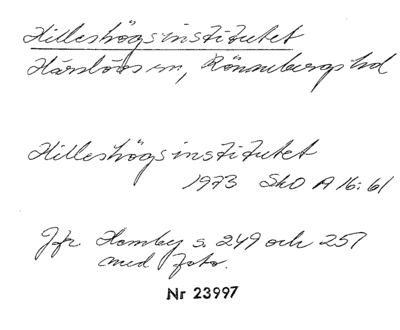 Hilleshögsinstitutet
Härslövs sn, Rönnebergs hd
Hilleshögsinstitutet
1973 SkO A 16:61
Jfr Homby s. 249 och 251
med foto.
Nr 23997